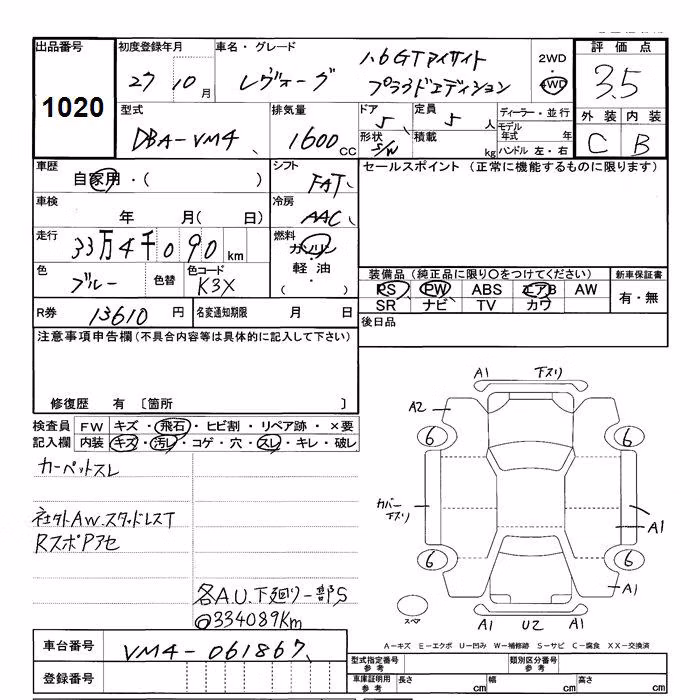 出品番号 1020
初度登録年月 27 10月
車名・グレード レヴォーグ 1.6GTアイサイト プラウドエディション
2WD 4WD
評価点 3.5
外装 C 内装 B
型式 DBA-VM4
排気量 1600cc
ドア 5
形状 S/W
定員 5人
積載 kg
ディーラー・並行
モデル年式 年
ハンドル 左・右
車歴 自家用・( )
シフト FAT
車検 年 月( 日)
冷房 AAC
走行 33万4千090km
燃料 ガソリン 軽油 ( ・ )
色 ブルー 色替
色コード K3X
R券 13610円
名変通知期限 月 日
セールスポイント (正常に機能するものに限ります)
装備品 (純正品に限り○をつけてください)
PS PW ABS エアB AW
SR ナビ TV カワ
新車保証書 有・無
後日品
注意事項申告欄 (不具合内容等は具体的に記入して下さい)
修復歴 有 〔箇所 〕
検査員記入欄
FW キズ・飛石・ヒビ割・リペア跡・×要
内装 キズ・汚レ・コゲ・穴・スレ・キレ・破レ
カーペットスレ
社外AW.スタッドレスT
RスポPアセ
各A.U.下廻リ一部S
@334089Km
A1 下スリ
A2
6 6
カバー下スリ
A1
6 6
A1
スペア
A1 U2 A1
A-キズ E-エクボ U-凹み W-補修跡 S-サビ C-腐食 XX-交換済
車台番号 VM4-061867
登録番号
型式指定番号 参考
類別区分番号 参考
車庫証明用 参考 長さ cm 幅 cm 高さ cm